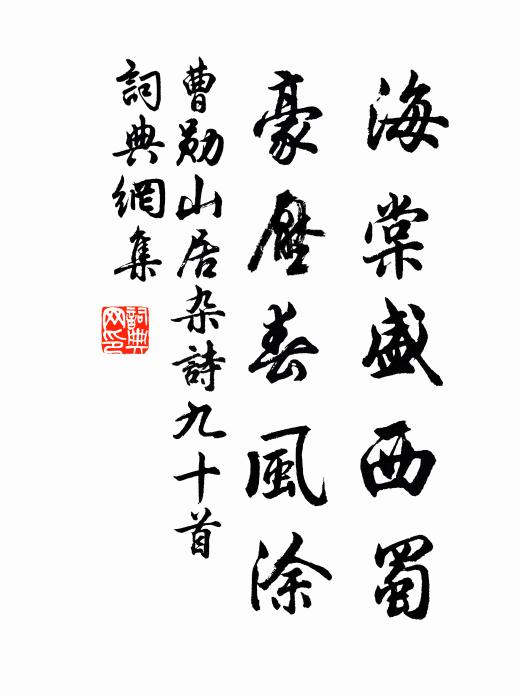 海棠盛西蜀
豪壓春風涂
曹勛山居杂詩九十首
詞典網集
詞典网印